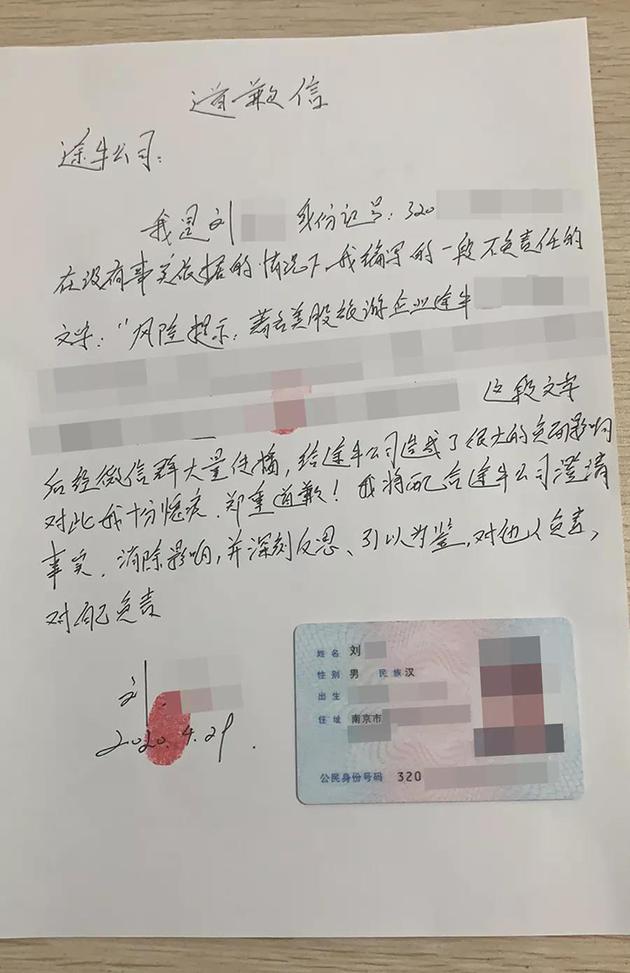 道歉信
途牛公司：
我是刘 身份证号：320
在没有事实依据的情况下，我编写的一段不负责任的
文字：“风险提示：著名美股旅游企业途牛
这段文字
后经微信群大量传播，给途牛公司造成了很大的负面影响
对此我十分愧疚、郑重道歉！我将配合途牛公司澄清
事实、消除影响，并深刻反思、引以为鉴，对他人负责，
对自己负责
刘
2020.4.29.
姓名 刘
性别 男 民族 汉
出生
住址 南京市
公民身份号码 320